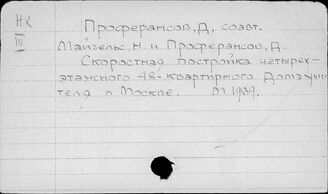 НХ
III
Проферансов, Д., соавт.
Майзель, Н. и Проферансов, Д.
Скоростная постройка четырех-
этажного 48-квартирного дома учи-
теля в Москве. М. 1939.